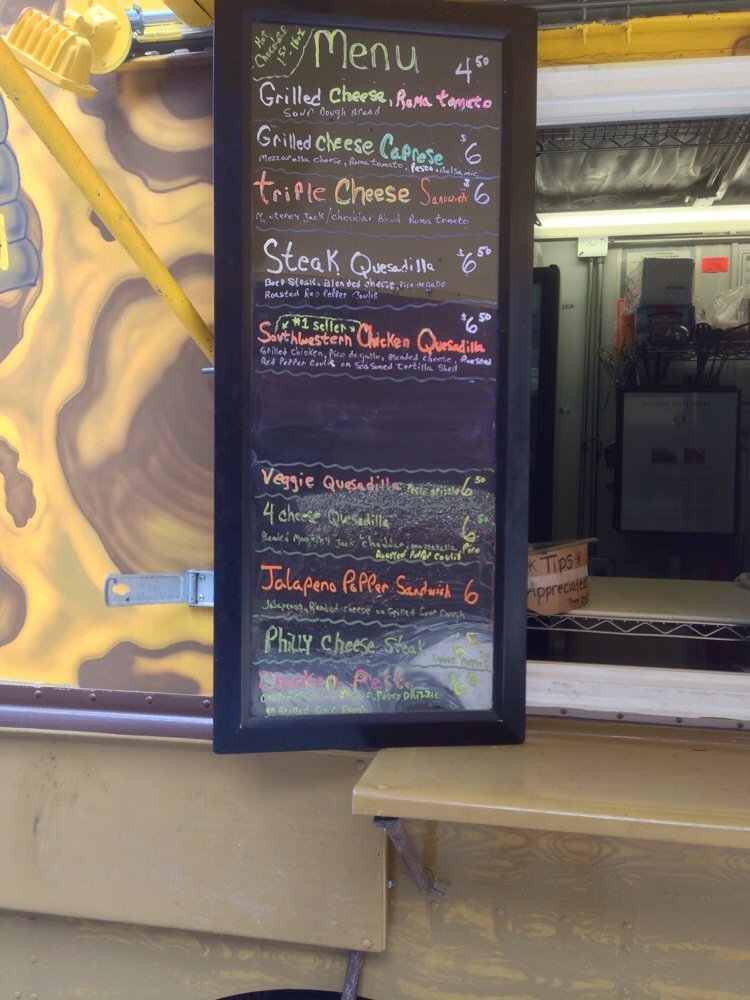 Hot
Chocolate
Menu
4 50
Grilled Cheese, Roma tomato
Sour Dough Bread
Grilled Cheese Caprese $6
Mozzarella cheese, Roma tomato, Pesto, Balsamic
triple Cheese Sandwich $6
Monterey Jack/cheddar Blend Roma tomato
Steak Quesadilla $6 50
Beef Steak, Blended cheese, Pico de gallo
Roasted Red Pepper Coulis
$6 50
#1 seller
Southwestern Chicken Quesadilla
Grilled Chicken, Pico de gallo, Blended cheese, Roasted
Red Pepper Coulis on Seasoned Tortilla Shell
Veggie Quesadilla Pesto drizzle 6 50
4 cheese Quesadilla 6 50
Blended Monterey Jack, cheddar, mozzarella, Pico
Roasted Pepper Coulis
Jalapeno Popper Sandwich 6
Jalapenos, Blended cheese on Grilled Sour Dough
Philly Cheese Steak 6
Sweet Peppers
Chicken Pesto 6
on Grilled Sour Dough
Tips
Appreciated